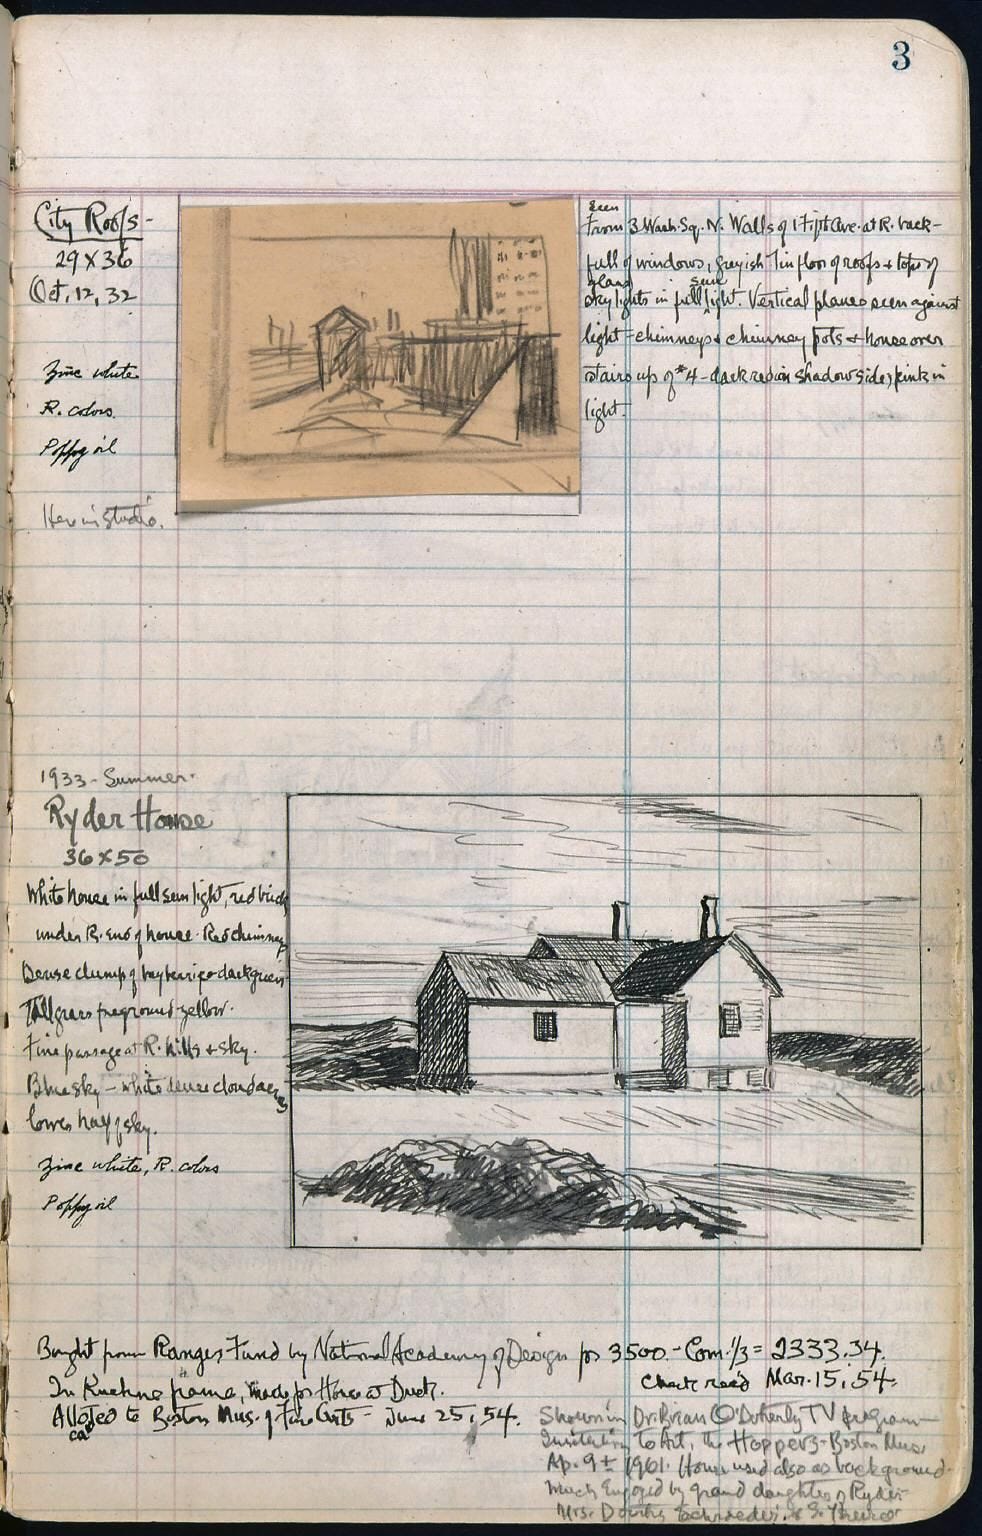 3
City Roofs -
29 X 36
Oct, 12, 32
Zinc white
R. colors
Poppy oil
Here in Studio.
Seen
From 3 Wash. Sq. N. Walls of 1 Fifth Ave. at R. back -
full of windows, greyish Tin floor of roofs + tops of
glass sun
skylights in full light. Vertical planes seen against
light - chimneys + chimney pots + house over
stairs up of #4 - dark red in shadow side, pink in
light.
1933 - Summer.
Ryder House
36 X 50
White house in full sun light, red brick
under R. end of house. Red chimney
Dense clump of bayberries dark green
Tall grass foreground yellow.
Fine passage at R. hills + sky.
Blue sky - white dense cloud across
lower half of sky.
Zinc white, R. colors
Poppy oil
Bought from Ranger Fund by National Academy of Design for 3500. - Com. 1/3 = 2333.34.
In Kuehne frame, made for House at Dusk.
Check rec'd Mar. 15, '54.
Alloted to Boston Mus. of Fine Arts - June 25, 54.
Shown in Dr. Brian O'Doherty TV program -
to Art, the Hoppers - Boston Mus.
Ap. 9 ± 1961. House used also as background -
Much enjoyed by grand daughter of Ryder
Mrs.